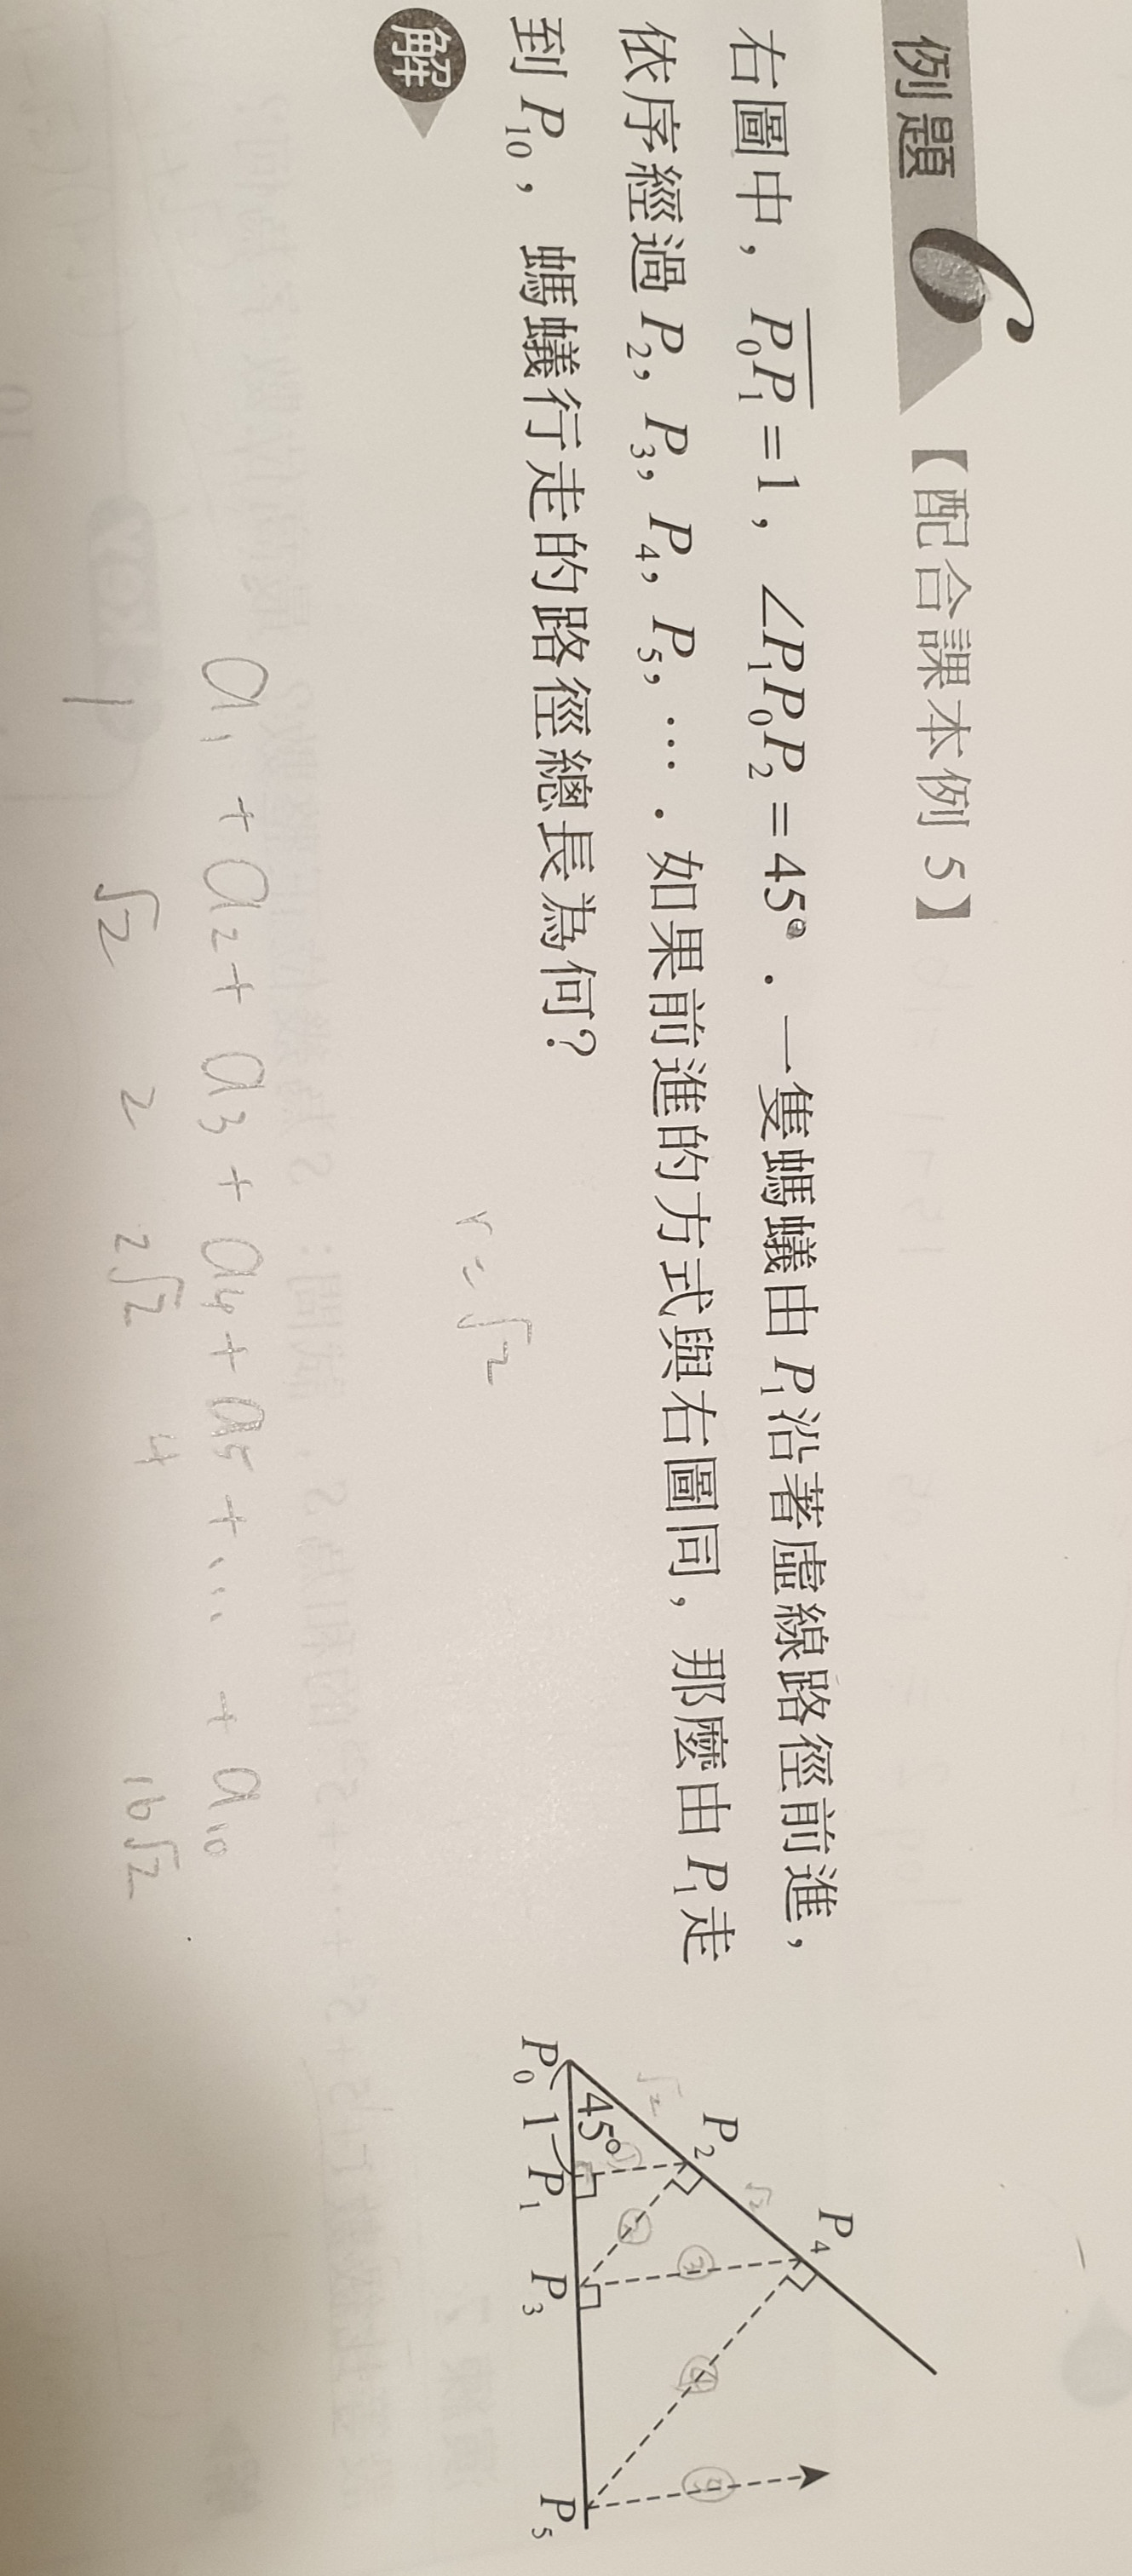 例題 6 【配合課本例 5】
右圖中，P₀P₁=1，∠P₁P₀P₂=45°．一隻螞蟻由 P₁沿著虛線路徑前進，
依序經過 P₂, P₃, P₄, P₅, ⋯．如果前進的方式與右圖同，那麼由 P₁走
到 P₁₀，螞蟻行走的路徑總長為何？
解
r = √2
a₁ + a₂ + a₃ + a₄ + a₅ + ⋯ + a₁₀
1 √2 2 2√2 4 16√2
P₂ P₄
√2 √2
45° ① ② ③ ④ ⑤
P₀ 1 P₁ P₃ P₅